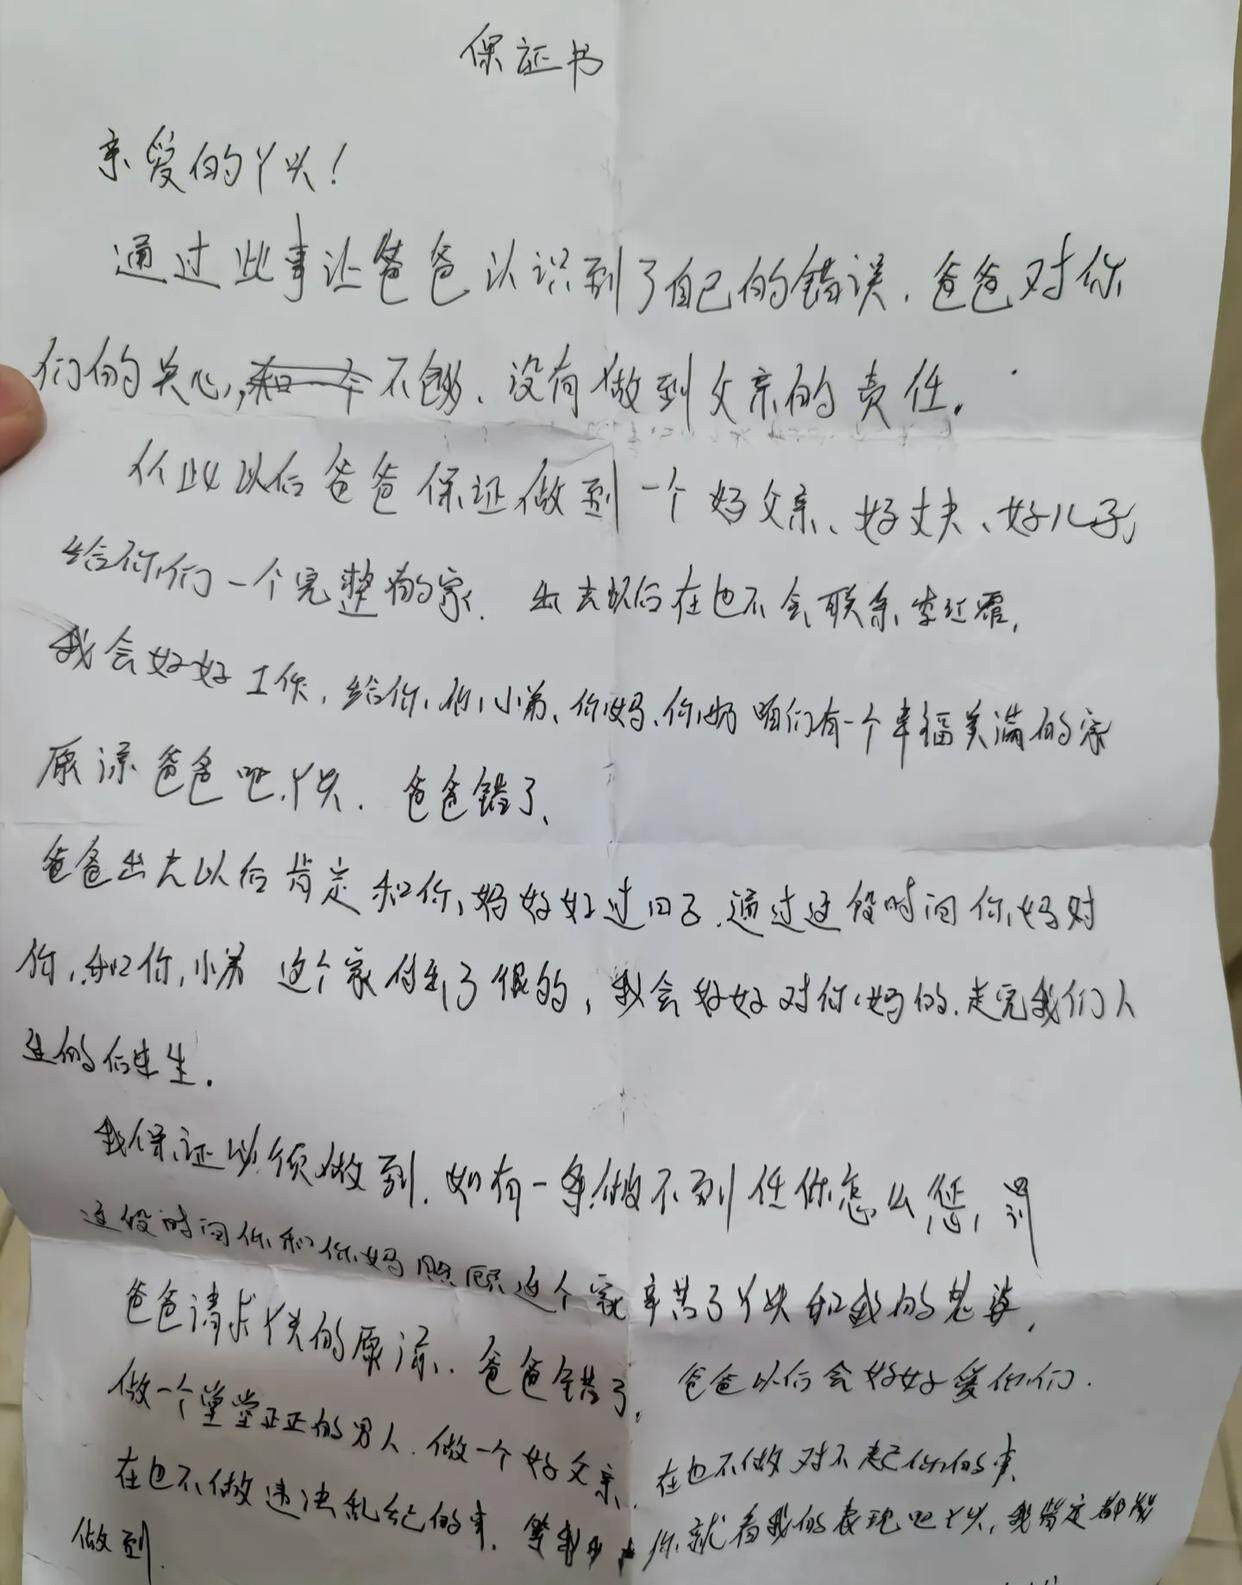 保证书
亲爱的丫头！
通过此事让爸爸认识到了自己的错误，爸爸对你
们的关心，不够、没有做到父亲的责任。
从此以后爸爸保证做到一个好父亲、好丈夫、好儿子，
给你们一个完整的家. 出去以后在也不会联系李红霞，
我会好好工作，给你，你小弟、你妈、你奶 咱们有一个幸福美满的家
原谅爸爸吧丫头. 爸爸错了、
爸爸出去以后肯定和你妈好好过日子.通过这段时间你妈对
你，和你小弟 这个家付出了很多，我会好好对你妈的.走完我们人
生的后半生.
我保证必须做到. 如有一条做不到任你怎么惩罚
这段时间你和你妈照顾这个家辛苦了丫头和我的老婆，
爸爸请求丫头的原谅. 爸爸错了， 爸爸以后会好好爱你们.
做一个堂堂正正的男人. 做一个好父亲、在也不做对不起你们的事.
在也不做违法乱纪的事. 你就看我的表现吧丫头，我肯定都能
做到.